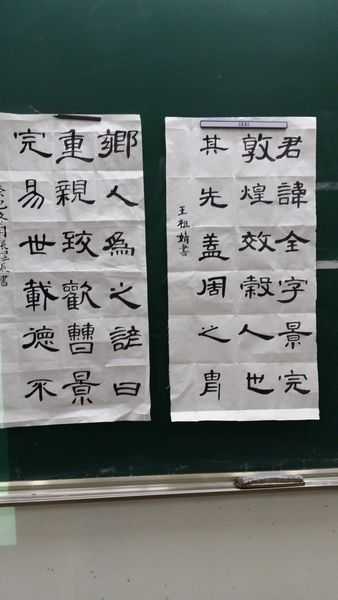 君諱全字景完
敦煌效穀人也
其先蓋周之冑
王祖婧書
鄉人爲之諺曰
重親致歡曹景
完易世載德不